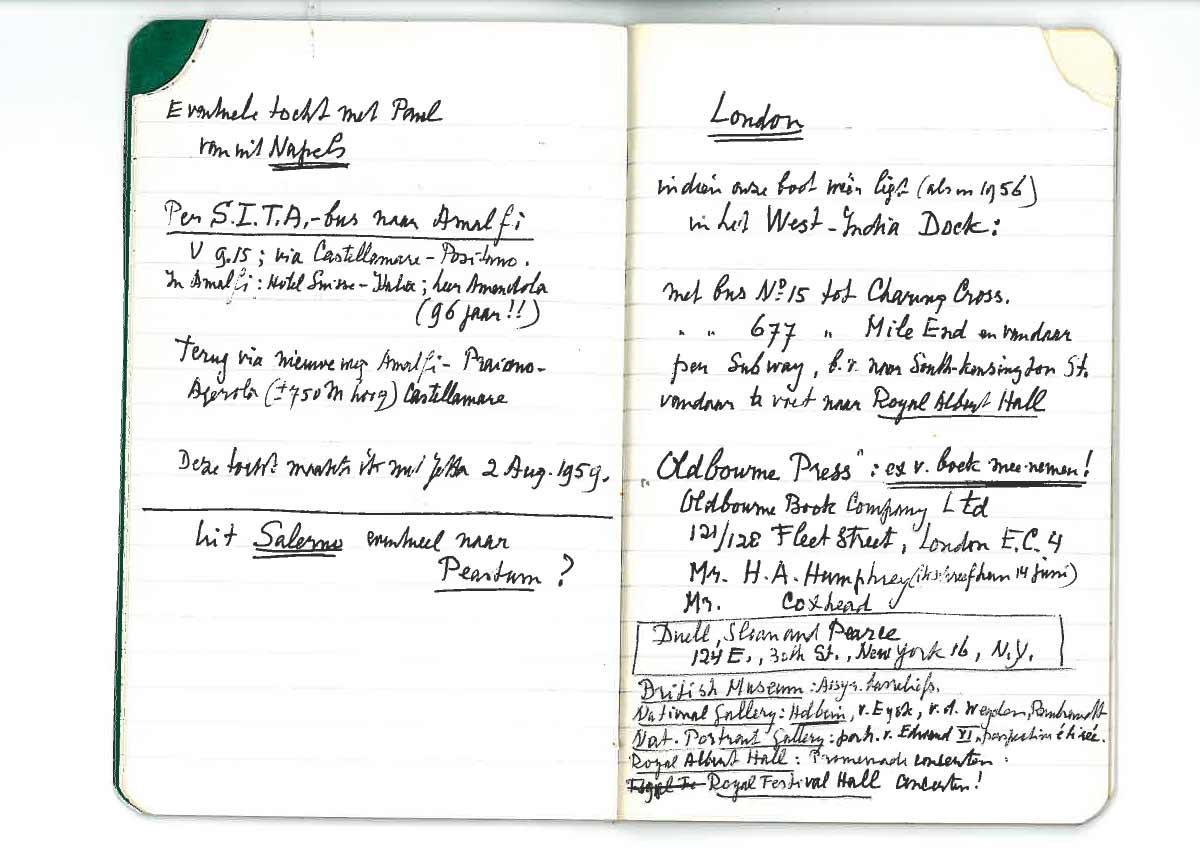 Eventuele tocht met Paul
vanuit Napels
Per S.I.T.A.-bus naar Amalfi
V 9.15; via Castellamare-Positano.
In Amalfi: Hotel Suisse-Italia; heer Amendola
(96 jaar!!)
Terug via nieuwe weg Amalfi-Praiano-
Agerola (±750 M hoog) Castellamare
Deze tocht maakte ik met Jetta 2 Aug. 1959.
Uit Salerno eventueel naar
Peastum?
London
indien onze boot weer ligt (als in 1956)
in het West-India Dock:
met bus No 15 tot Charing Cross.
" " 677 " Mile End en vandaar
per Subway, b.v. naar South-Kensington St.
vandaar te voet naar Royal Albert Hall
"Oldbourne Press": ex v. boek mee-nemen!
Oldbourne Book Company Ltd
121/128 Fleet Street, London E.C.4
Mr. H.A. Humphrey (ik schreef hem 14 juni)
Mr. Coxhead
Duell, Sloan and Pearce
124 E., 30th St., New York 16, N.Y.
British Museum: Assyr. basreliefs.
National Gallery: Holbein, v. Eyck, v.d. Weyden, Rembrandt
Nat. Portrait Gallery: portr. v. Edward VI, perspective étirée.
Royal Albert Hall: Promenade concerten:
Royal Festival Hall concerten!